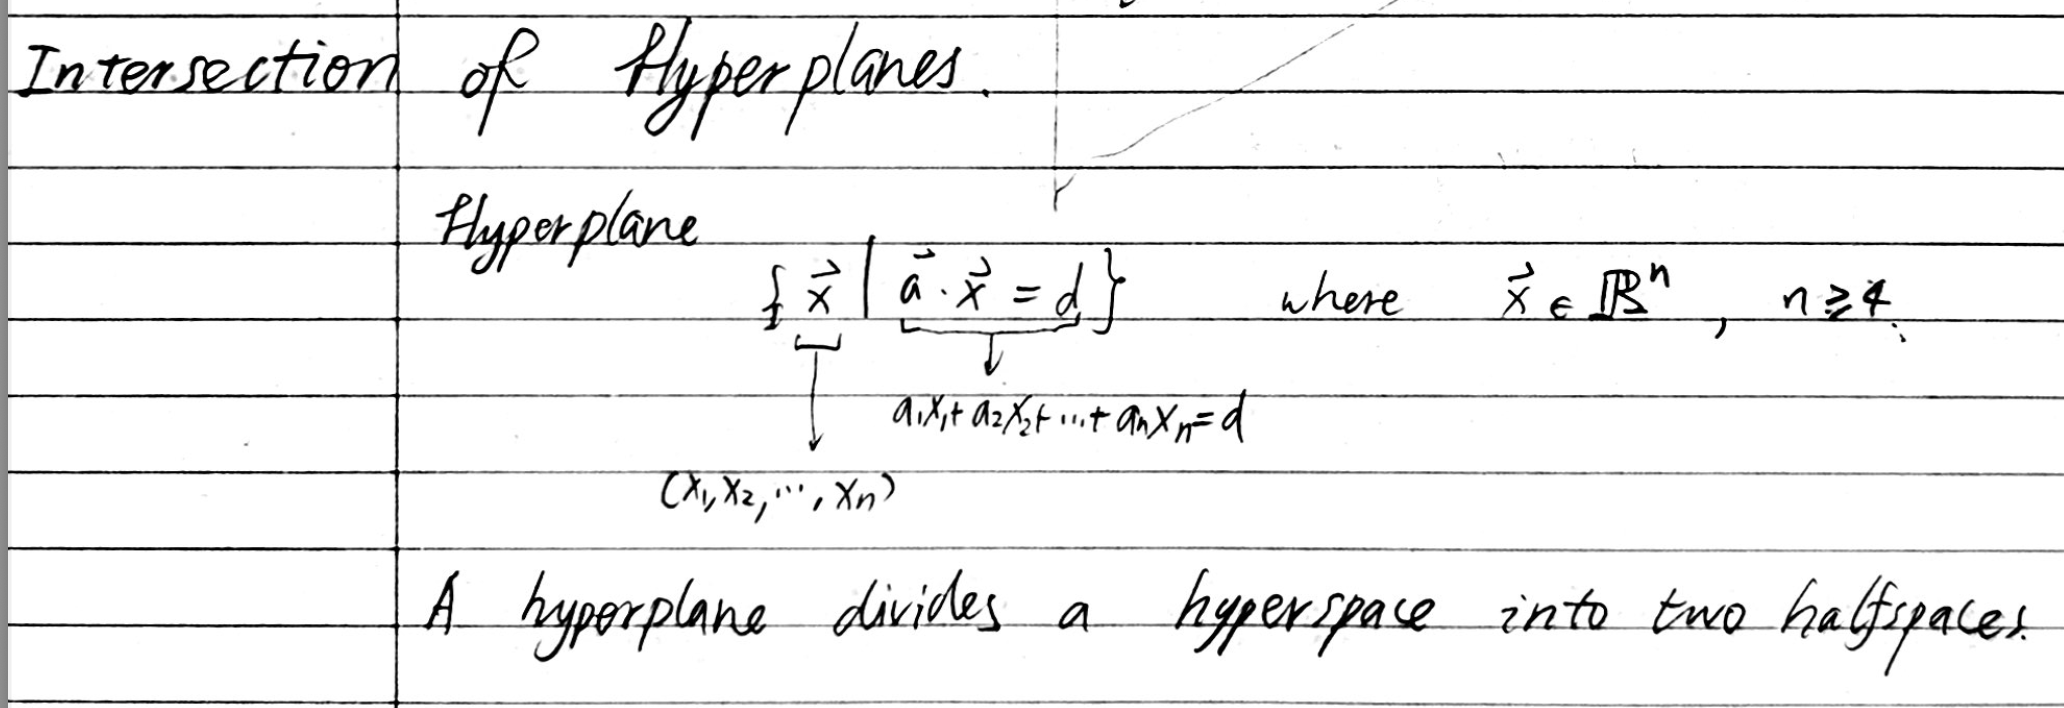 Intersection of Hyperplanes.
Hyperplane
{ x⃗ | a⃗ · x⃗ = d } where x⃗ ∈ ℝⁿ, n ≥ 4.
a₁x₁ + a₂x₂ + ... + aₙxₙ = d
(x₁, x₂, ..., xₙ)
A hyperplane divides a hyperspace into two halfspaces.